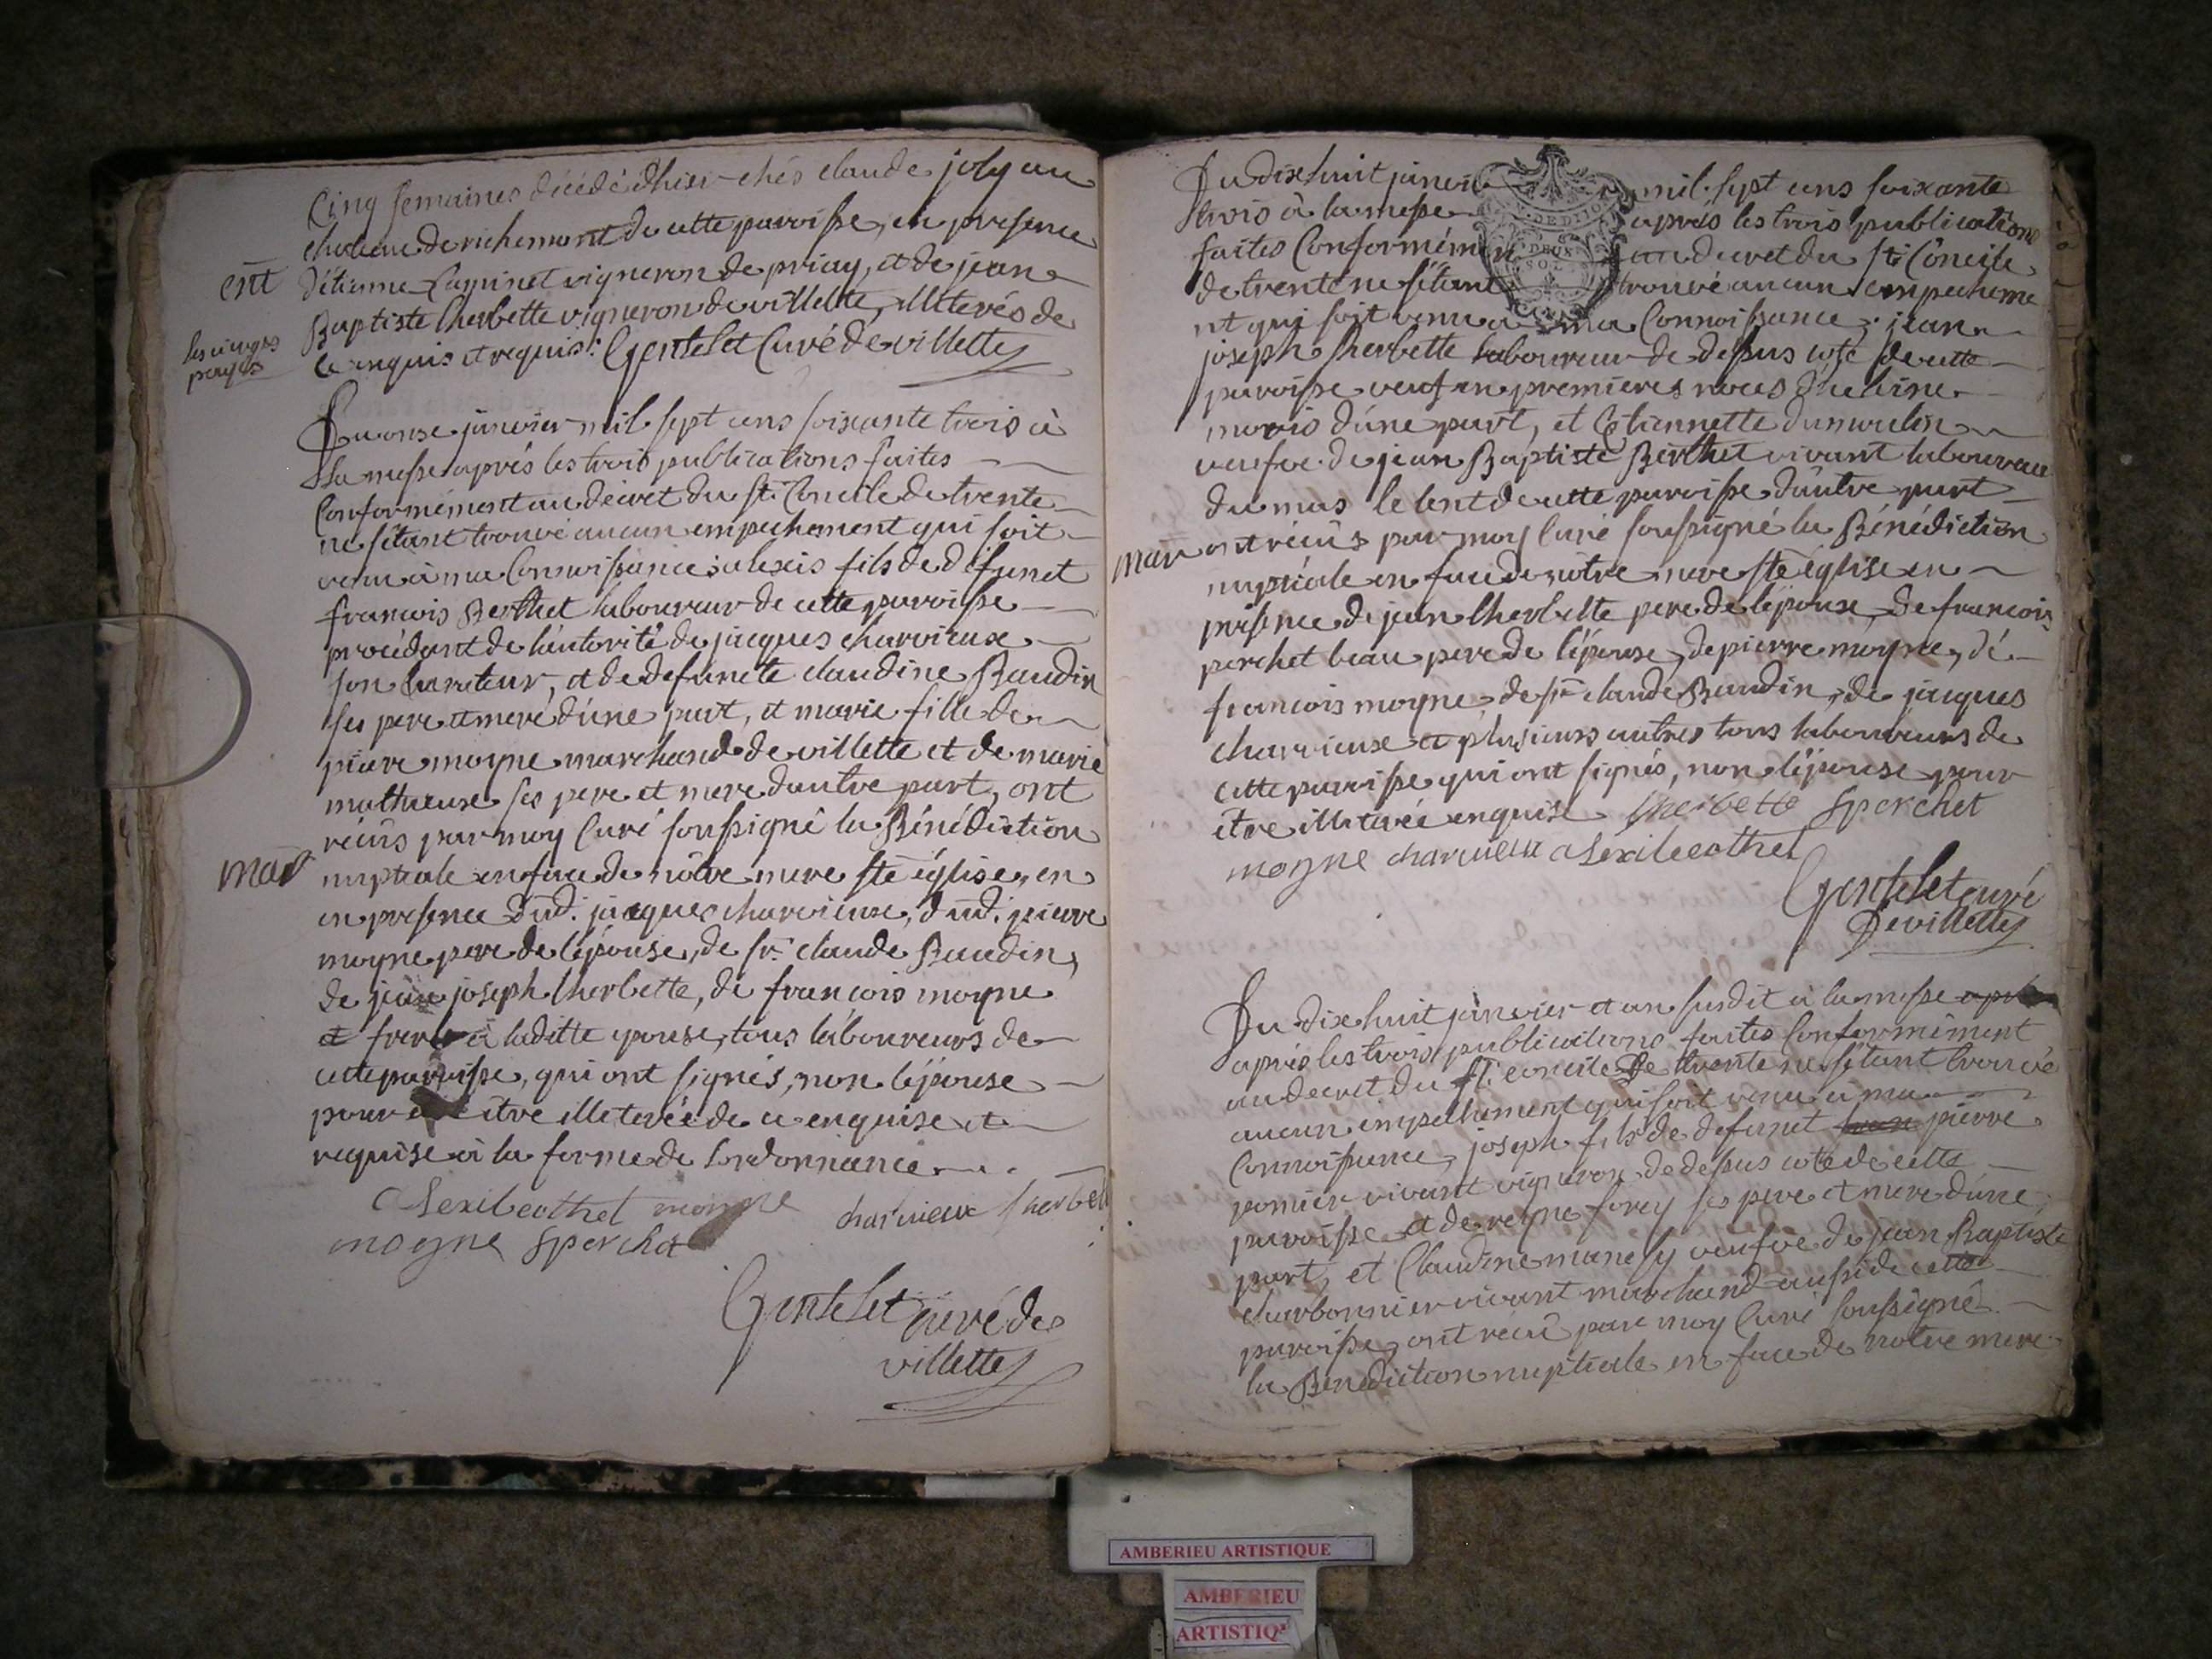 Cinq semaines décédé d'hier chés claude joly au
chateau de richemont de cette paroisse, en presence
ent
d'étienne vigneron de priay, et de jean
Baptiste lherbette vigneron de villette, illiterés de
ce enquis et requis. Gentelet Curé de villette
Du onse janvier mil sept cens soixante trois à
la messe après les trois publications faites
Conformément au décret du st. Concile de trente
ne s'étant trouvé aucun empechement qui soit
venu à ma Connoissance alexis fils de défunct
françois Berthet laboureur de cette paroisse
procédant de l'autorité de jacques charvieux
son Curateur, et de defuncte claudine Baudin
ses pere et mere d'une part, et marie fille de
pierre moyne marchand de villette et de marie
mathieuse ses pere et mere d'autre part, ont
réçûs par moy Curé soussigné la Bénédiction
mar
nuptiale en face de nôtre mere ste église, en
en presence dud. jacques charvieux, dud. pierre
moyne pere de l'épouse, de sr. claude Baudin,
de jean joseph lherbette, de françois moyne
et frere à laditte epouse, tous laboureurs de
cette paroisse, qui ont signés, non l'épouse
pour être illeterée de ce enquise et
requise à la forme de l'ordonnance
Alexi beothet moyne charvieux lherbett
moyne f perchet
Gentelet curé de
villette
Du dix huit janvier mil sept cens soixante
trois à la messe après les trois publications
faites Conformémen au decret du st. Concile
DEDITIO
DEUS
SOL
de trente ne s'étant trouvé aucun empecheme
nt qui soit venu a ma Connoissance. jean
joseph lherbette laboureur de dessus cote de cette
paroisse veuf en premieres noces
d'une part, et Etiennette dumoulin
veufve de jean Baptiste Berthet vivant laboureur
du mas le lent de cette paroisse d'autre part
mar
ont réçûs par moy Curé soussigné la Bénédiction
nuptiale en face de nôtre mere ste église en
présence de jean lherbette pere de l'épouse, de françois
perchet beau pere de l'épouse, de pierre moyne, de
françois moyne, de sr claude Baudin, de jacques
charvieux et plusieurs autres tous laboureurs de
cette paroisse qui ont signés, non l'épouse pour
être illiterée enquise lherbette f perchet
moyne charvieux alexi beothet
Gentelet curé
De villette
Du dix huit janvier et an susdit à la messe
après les trois publications faites Conformément
au decret du st. concile De trente ne s'étant trouvé
aucun empechement qui soit venu à ma
Connoissance, joseph fils de defunct pierre
pomier vivant vigneron de dessus cote de cette
paroisse et de reyne forey ses pere et mere d'une
part, et Claudine veufve de jean Baptiste
charbonnier vivant marchand aussi de cette
paroisse, ont recû par moy Curé soussigné
la Bénédiction nuptiale en face de notre mere
AMBERIEU ARTISTIQUE
AMBERIEU
ARTISTIQ